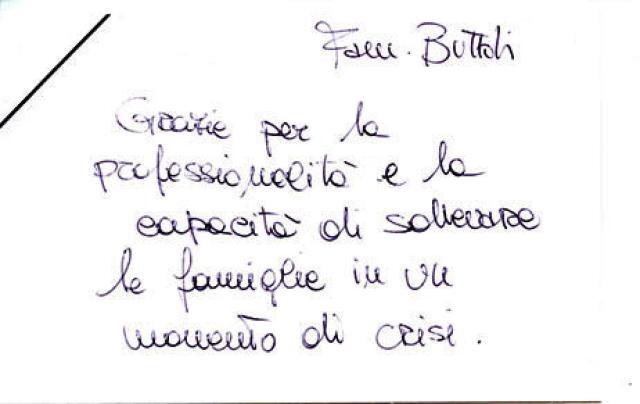 Fam. Buttoli
Grazie per la
professionalità e la
capacità di sollevare
le famiglie in un
momento di crisi.